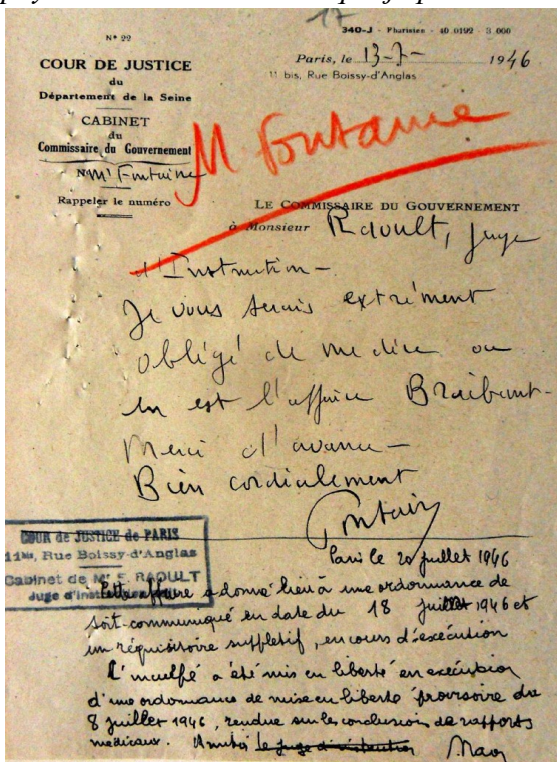 17
N° 22
340-J - Fharisien - 40.0192 - 3.000
COUR DE JUSTICE
du
Département de la Seine
Paris, le 13-7- 1946
11 bis, Rue Boissy-d'Anglas
CABINET
du
Commissaire du Gouvernement
M Fontaine
N Mr Fontaine
Rappeler le numéro
LE COMMISSAIRE DU GOUVERNEMENT
à Monsieur Raoult, juge
d'Instruction-
Je vous serais extrément
obligé de me dire ou
en est l'affaire Braibant-
Merci d'avance-
Bien cordialement
Fontain
COUR de JUSTICE de PARIS
11bis, Rue Boissy-d'Anglas
Cabinet de Mr E. RAOULT
Juge d'Inst
Paris le 20 juillet 1946
Cette affaire a donné lieu à une ordonnance de
soit-communiqué en date du 18 juillet 1946 et
un réquisitoire supplétif, en cours d'exécution
L'inculpé a été mis en liberté en exécution
d'une ordonnance de mise en liberté provisoire du
8 juillet 1946, rendue sur les conclusions de rapports
médicaux. Amitiés le juge d'instruction